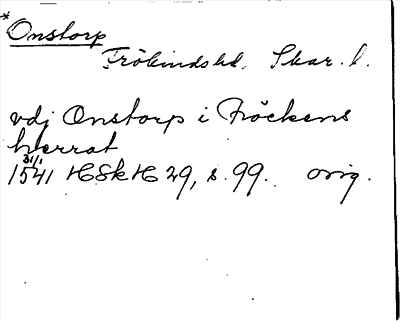 * Onstorp
Frökindshd. Skar. l.
vdj Onstorp i Fröckens
herrat
31/1
1541 HSkH 29, s. 99. orig.